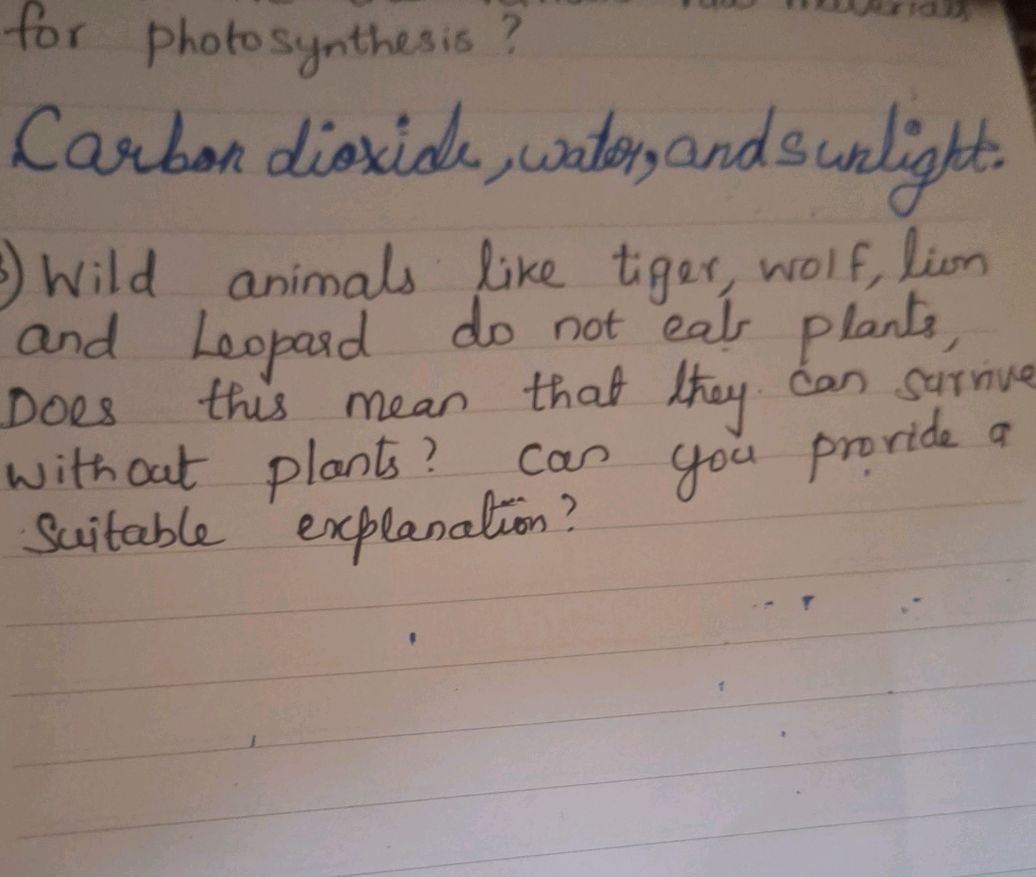 raw materials
for photosynthesis?
Carbon dioxide, water, and sunlight.
) Wild animals like tiger, wolf, lion
and Leopard do not eat plants,
Does this mean that they can survive
without plants? can you provide a
suitable explanation?